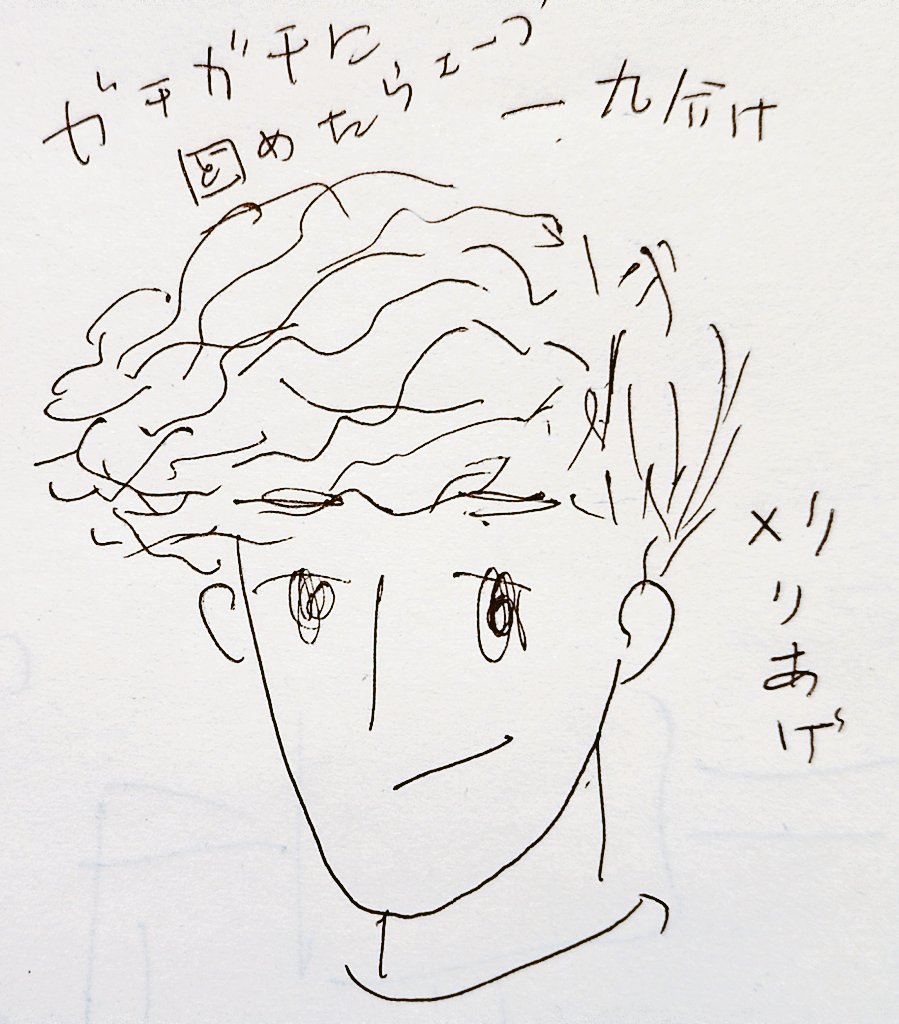 ガチガチに
固めたウェーブ
一.九分け
刈りあげ